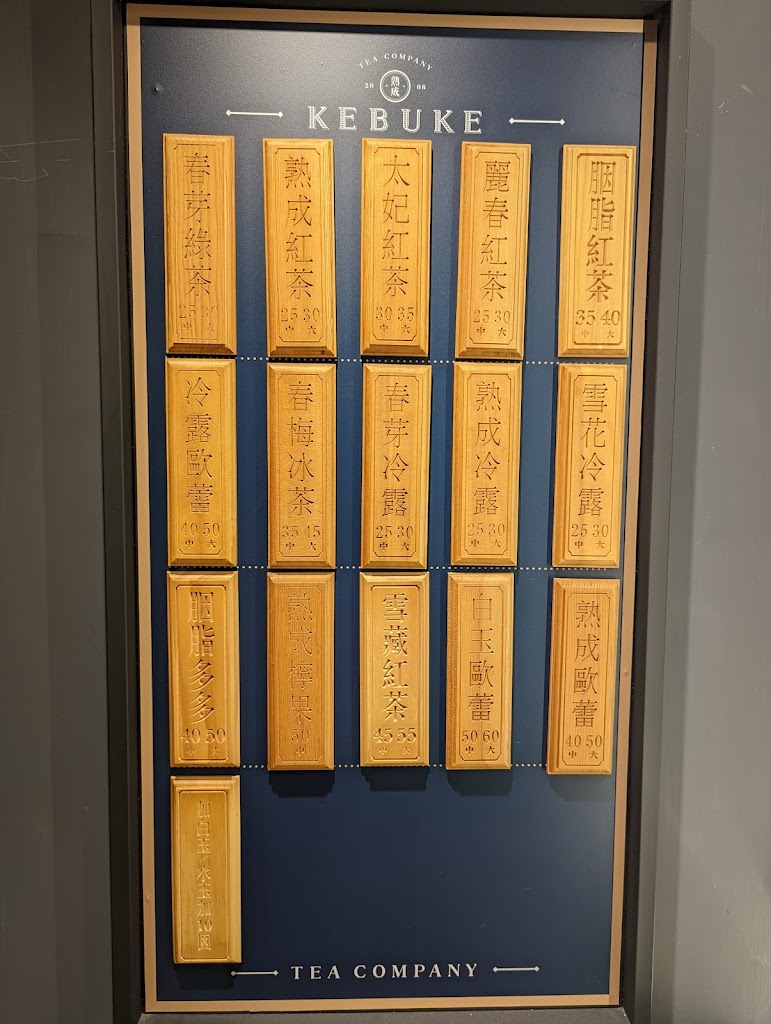 TEA COMPANY
20 熟成 08
KEBUKE
春芽綠茶
25 30
中 大
熟成紅茶
25 30
中 大
太妃紅茶
30 35
中 大
麗春紅茶
25 30
中 大
胭脂紅茶
35 40
中 大
冷露歐蕾
40 50
中 大
春梅冰茶
35 45
中 大
春芽冷露
25 30
中 大
熟成冷露
25 30
中 大
雪花冷露
25 30
中 大
胭脂多多
40 50
中 大
熟成檸果
50
中
雪藏紅茶
45 55
中 大
白玉歐蕾
50 60
中 大
熟成歐蕾
40 50
中 大
加白玉/水玉加10圓
TEA COMPANY